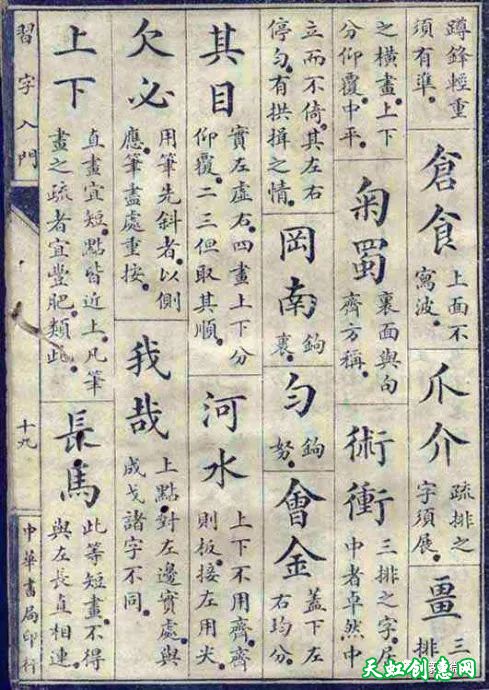 蹲鋒輕重
須有準。
倉食
上面不
寫波。
爪介
疏排之
字須展。
畺
三
排
之橫畫上下
分仰覆中平。
菊蜀
裏面與勾
齊方稱。
術衝
三排之字居
中者卓然中
立而不倚。其左右
停勻。有拱揖之情。
岡南
鉤
裏。
勻
鉤
努。
會金
蓋下左
右均分。
其目
實左虛右。四畫上下分
仰覆。二三但取其順。
河水
上下不用齊。齊
則板。接左用尖。
欠必
用筆先斜者。以側
應。筆盡處重按。
我哉
上點。對左邊實處。與
成戈諸字不同。
上下
直畫宜短。點皆近上。凡筆
畫之疏者宜豐肥。類此。
長馬
此等短畫。不得
與左長直相連。
習字入門
十九
中華書局印行
天虹创意网